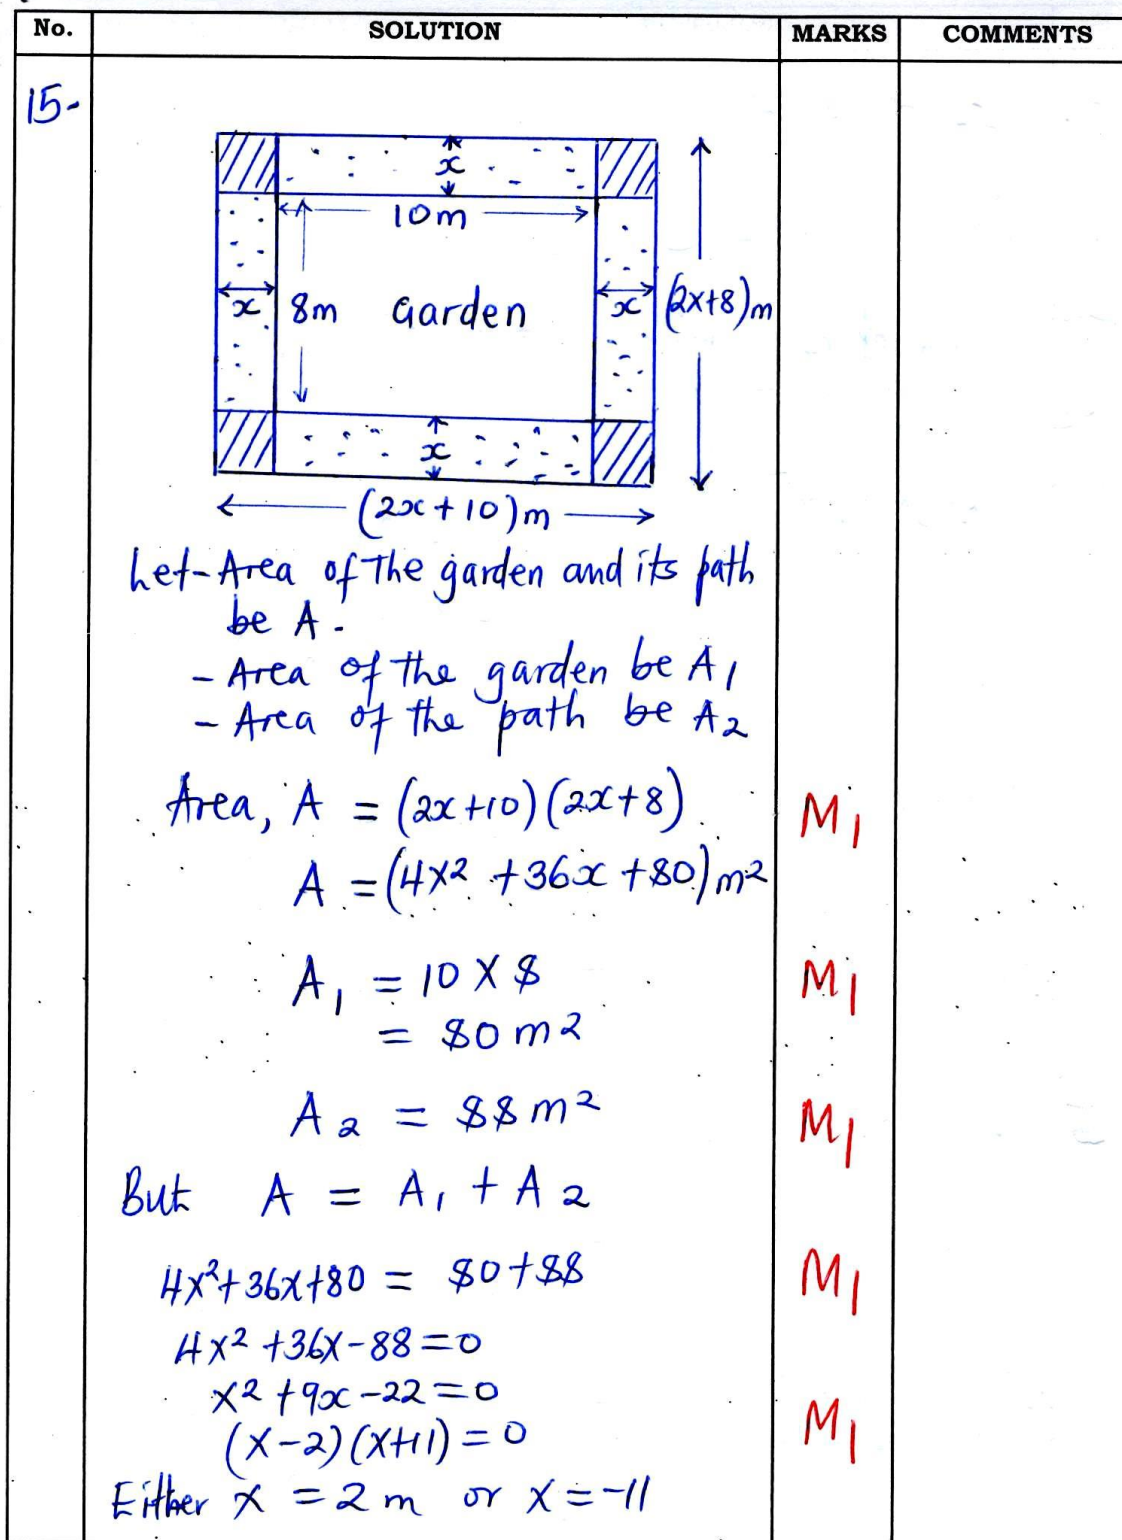 No. SOLUTION MARKS COMMENTS
15-
x
10m
x 8m Garden x (2x+8)m
x
(2x+10)m
Let-Area of The garden and its path
be A.
- Area of the garden be A1
- Area of the path be A2
Area, A = (2x+10)(2x+8) M1
A = (4x2 +36x +80)m2
A1 = 10 X 8 M1
= 80 m2
A2 = 88m2 M1
But A = A1 + A2
4x²+36x+80 = 80+88 M1
4x2 +36x-88=0
x2 +9x-22=0
(x-2)(x+11)=0 M1
Either x = 2m or x = -11